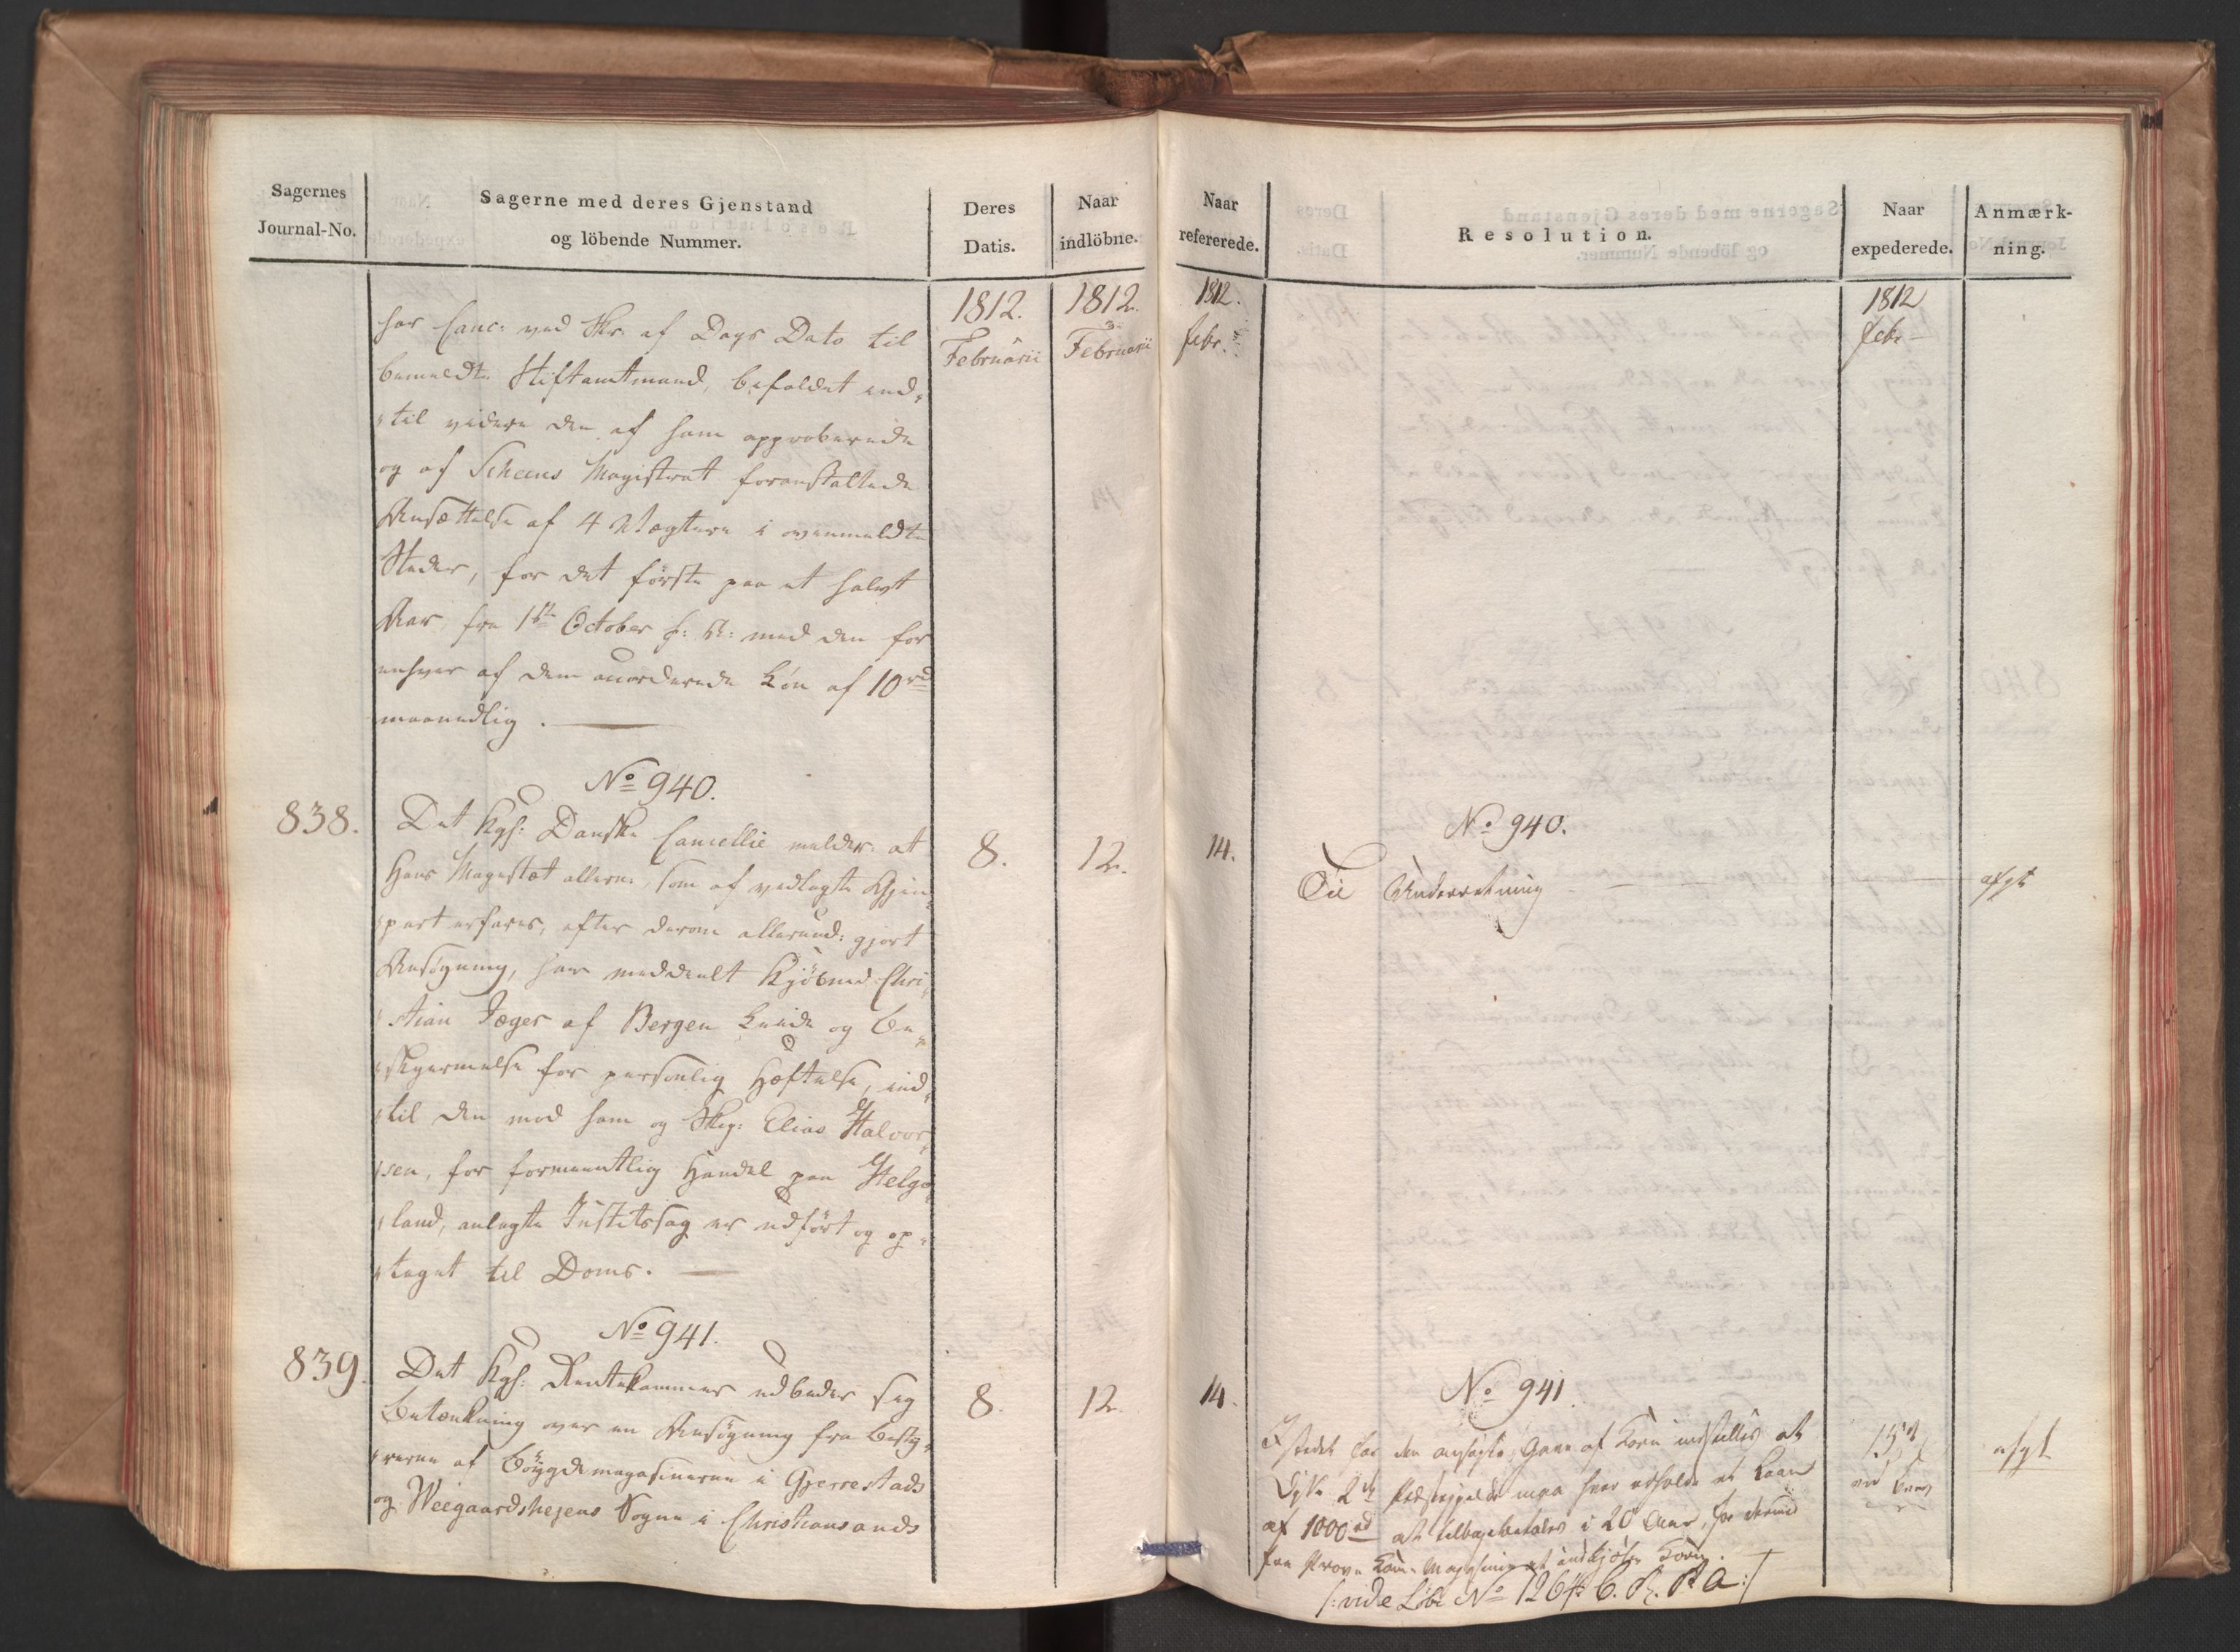 Sagernes
Journal-No.
Sagerne med deres Gjenstand
og löbende Nummer.
Deres
Datis.
Naar
indlöbne.
1812.
Februarii
1812.
Februarii
har Canc: ved Skr. af Dags Dato til
bemeldte Stiftamtmand, befalet ind-
til videre den af ham approberede
og af Scheens Magistrat foranstaltede
Ansættelse af 4 Vægtere i ovenmeldte
Steder, for det förste paa et halvt
Aar, fra 1ste October f: A: med den for
enhver af dem accorderede Lön af 10 rd
maanedlig.
No 940.
838.
Det Kgl: Danske Cancellie melder at
8.
12.
Hans Majestæt allern:, som af vedlagte Gjen-
part erfares, efter derom allerund: gjort
Ansögning, har meddeelt Kjöbmd Chri-
stian Jæger af Bergen Leide og Be-
skjermelse for personlig Hæftelse, ind-
til den mod ham og Skip: Elias Halvor-
sen, for formeentlig Handel paa Helgo-
land, anlagte Justitssag er udfört og op-
taget til Doms.
No 941.
839.
Det Kgl: Rentekammer udbeder sig
8.
12.
Betænkning over en Ansögning fra Besty-
rerne af Böygdemagasinerne i Gjerrestads
og Weegaardshejens Sogne i Christiansands
Naar
refererede.
Resolution.
Naar
expederede.
Anmærk-
ning.
1812.
febr.
1812
febr
No 940.
14.
Til Underretning
afgt
No 941.
14.
I stedet for den ansøgte Gave af Korn indstilles at
15de
afgt
Præstegjelde maa hver erholde et Laan
ved Brev
af 1000 rd at tilbagebetales i 20 Aar, for dermed
fra Prov. Korn-Magasinet at indkjöbe Korn.
/: vide Löbe No 1264